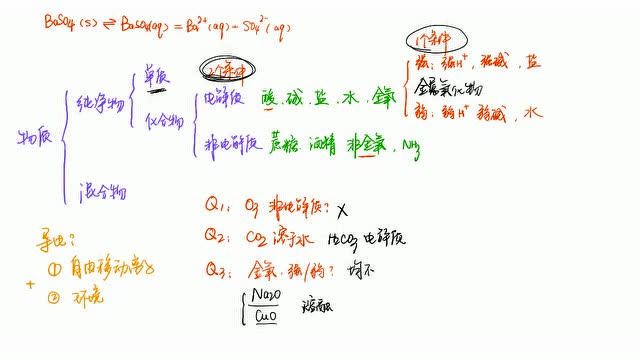 BaSO4(s) ⇌ BaSO4(aq) = Ba²⁺(aq) + SO4²⁻(aq)
1个条件
2个条件
强：强H⁺，强碱，盐
金属氧化物
弱：弱H⁺ 弱碱，水
物质
纯净物
单质
化合物
电解质 酸、碱、盐、水、金氧
非电解质 蔗糖 酒精 非金氧，NH3
混合物
Q1： O3 非电解质？ ×
Q2： CO2 溶于水 H2CO3 电解质
Q3： 金氧、强/弱？ 均不
Na2O
CuO
熔融
导电？
① 自由移动离子
+
② 环境